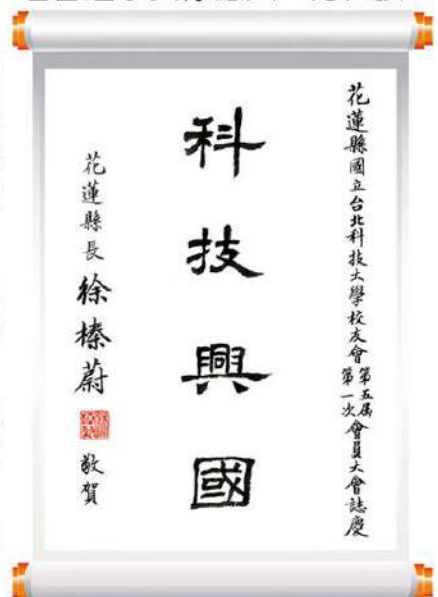 花蓮縣國立台北科技大學校友會第五屆第一次會員大會誌慶
科技興國
花蓮縣長徐榛蔚敬賀